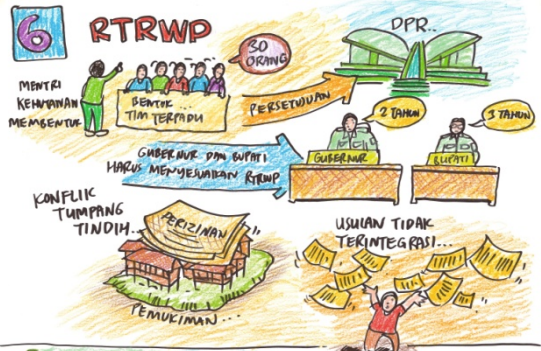 6
RTRWP
30
ORANG
DPR..
MENTRI
KEHUTANAN
MEMBENTUK
BENTUK...
TIM TERPADU
PERSETUJUAN
2 TAHUN
3 TAHUN
GUBERNUR DAN BUPATI
HARUS MENYESUAIKAN RTRWP
GUBERNUR
BUPATI
KONFLIK
TUMPANG
TINDIH...
PERIZINAN
PEMUKIMAN...
USULAN TIDAK
TERINTEGRASI...